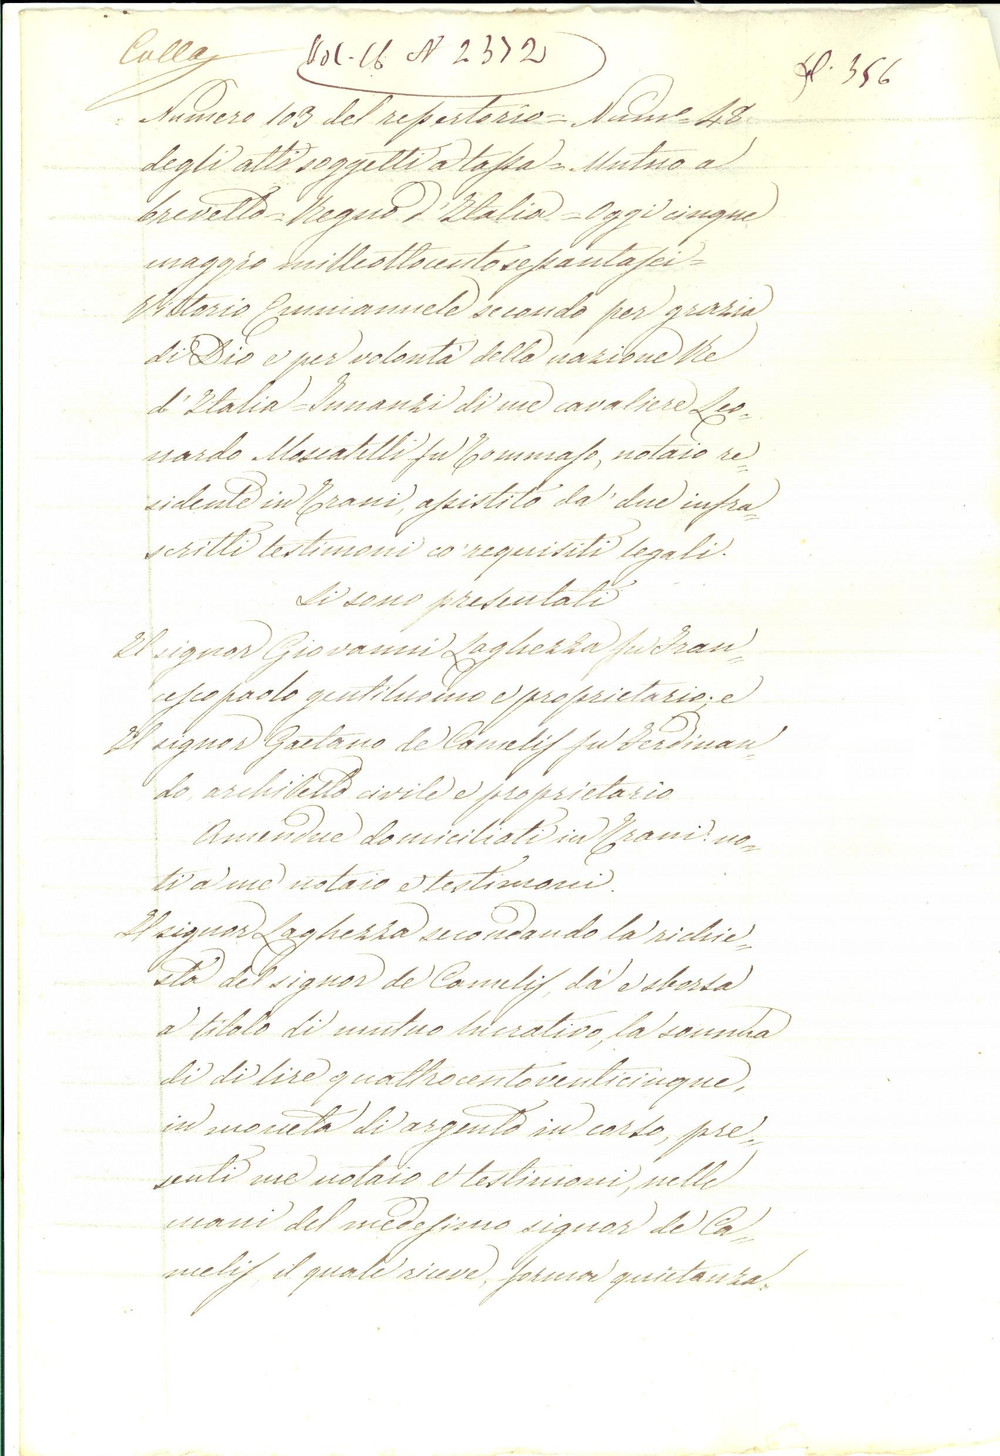 Colla Vol. 16 N 2372 fol. 356
Numero 103 del repertorio = Num.o 48
degli atti soggetti a tassa = Mutuo a
brevetto = Regno d'Italia = Oggi cinque
maggio milleottocentosessantasei =
Vittorio Emmanuele secondo per grazia
di Dio e per volontà della nazione Re
d'Italia = Innanzi di me cavaliere Leo=
nardo Moscatelli fu Tommaso, notaio re=
sidente in Trani, assistito da' due infra=
scritti testimoni co' requisiti legali.
Si sono presentati
Il signor Giovanni Laghezza fu Fran=
cescopaolo gentiluomo e proprietario; e
Il signor Gaetano de Camelis fu Ferdinan=
do, architetto civile e proprietario
Amendue domiciliati in Trani: no=
ti a me notaio e testimoni.
Il signor Laghezza secondando la richie=
sta del signor de Camelis, dà e sborsa
a titolo di mutuo lucrativo, la somma
di di lire quattrocentoventicinque,
in moneta di argento in corso, pre=
senti me notaio e testimoni, nelle
mani del medesimo signor de Ca=
melis, il quale riceve, forma quietanza.